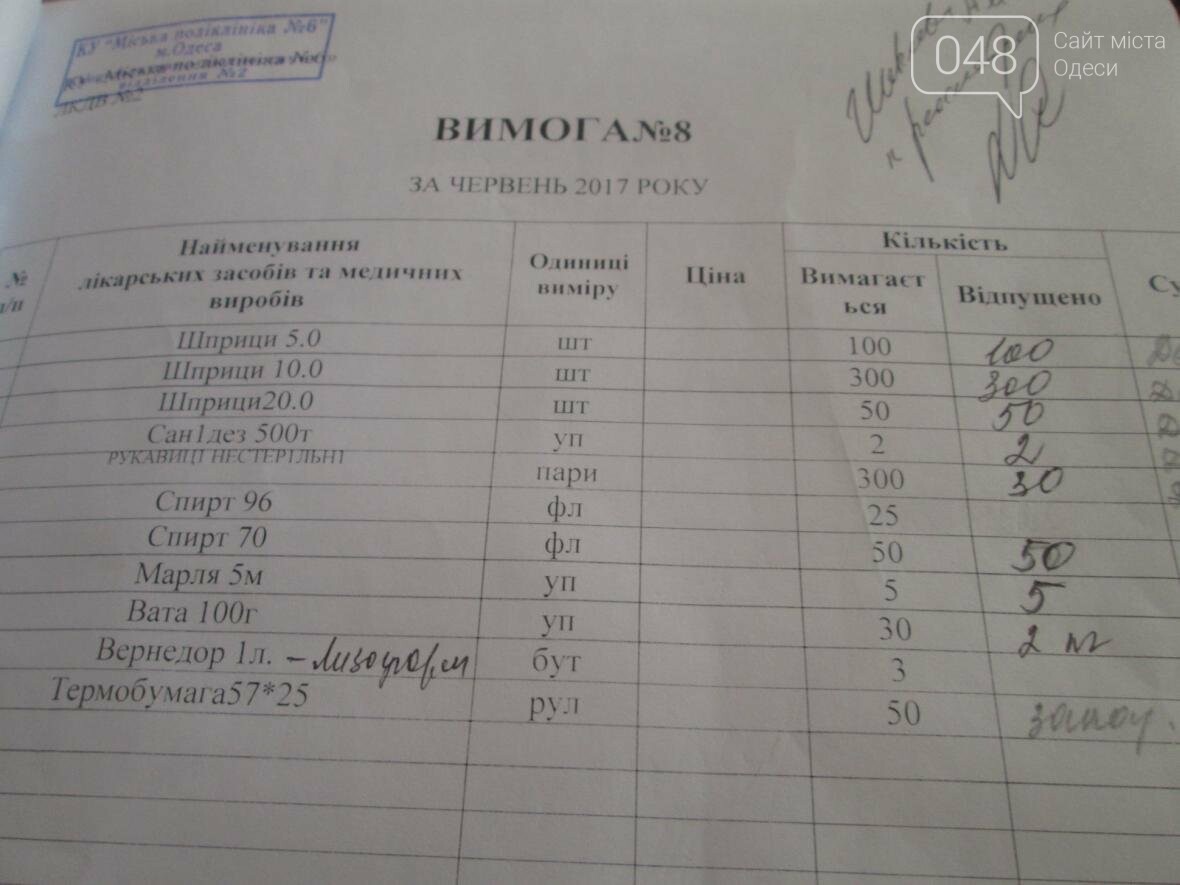 КУ "Міська поліклініка №6"
м.Одеса
КУ "Міська поліклініка №6"
відділення №2
ЛКДВ №2
048 Сайт міста
Одеси
ВИМОГА№8
ЗА ЧЕРВЕНЬ 2017 РОКУ
№ п/п Найменування лікарських засобів та медичних виробів Одиниці виміру Ціна Кількість Су
Вимагаєт ься Відпущено
Шприци 5.0 шт 100 100
Шприци 10.0 шт 300 300
Шприци20.0 шт 50 50
Сан1дез 500т уп 2 2
РУКАВИЦІ НЕСТЕРІЛЬНІ пари 300 30
Спирт 96 фл 25
Спирт 70 фл 50 50
Марля 5м уп 5 5
Вата 100г уп 30 2
Вернедор 1л. – Лизоформ бут 3
Термобумага57*25 рул 50